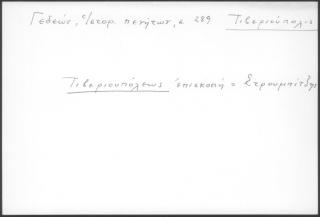 Γεδεών, Ἱστορ. πενήτων, σ. 289 Τιβεριούπολις
Τιβεριουπόλεως ἐπισκοπή = Στρουμπίτζης